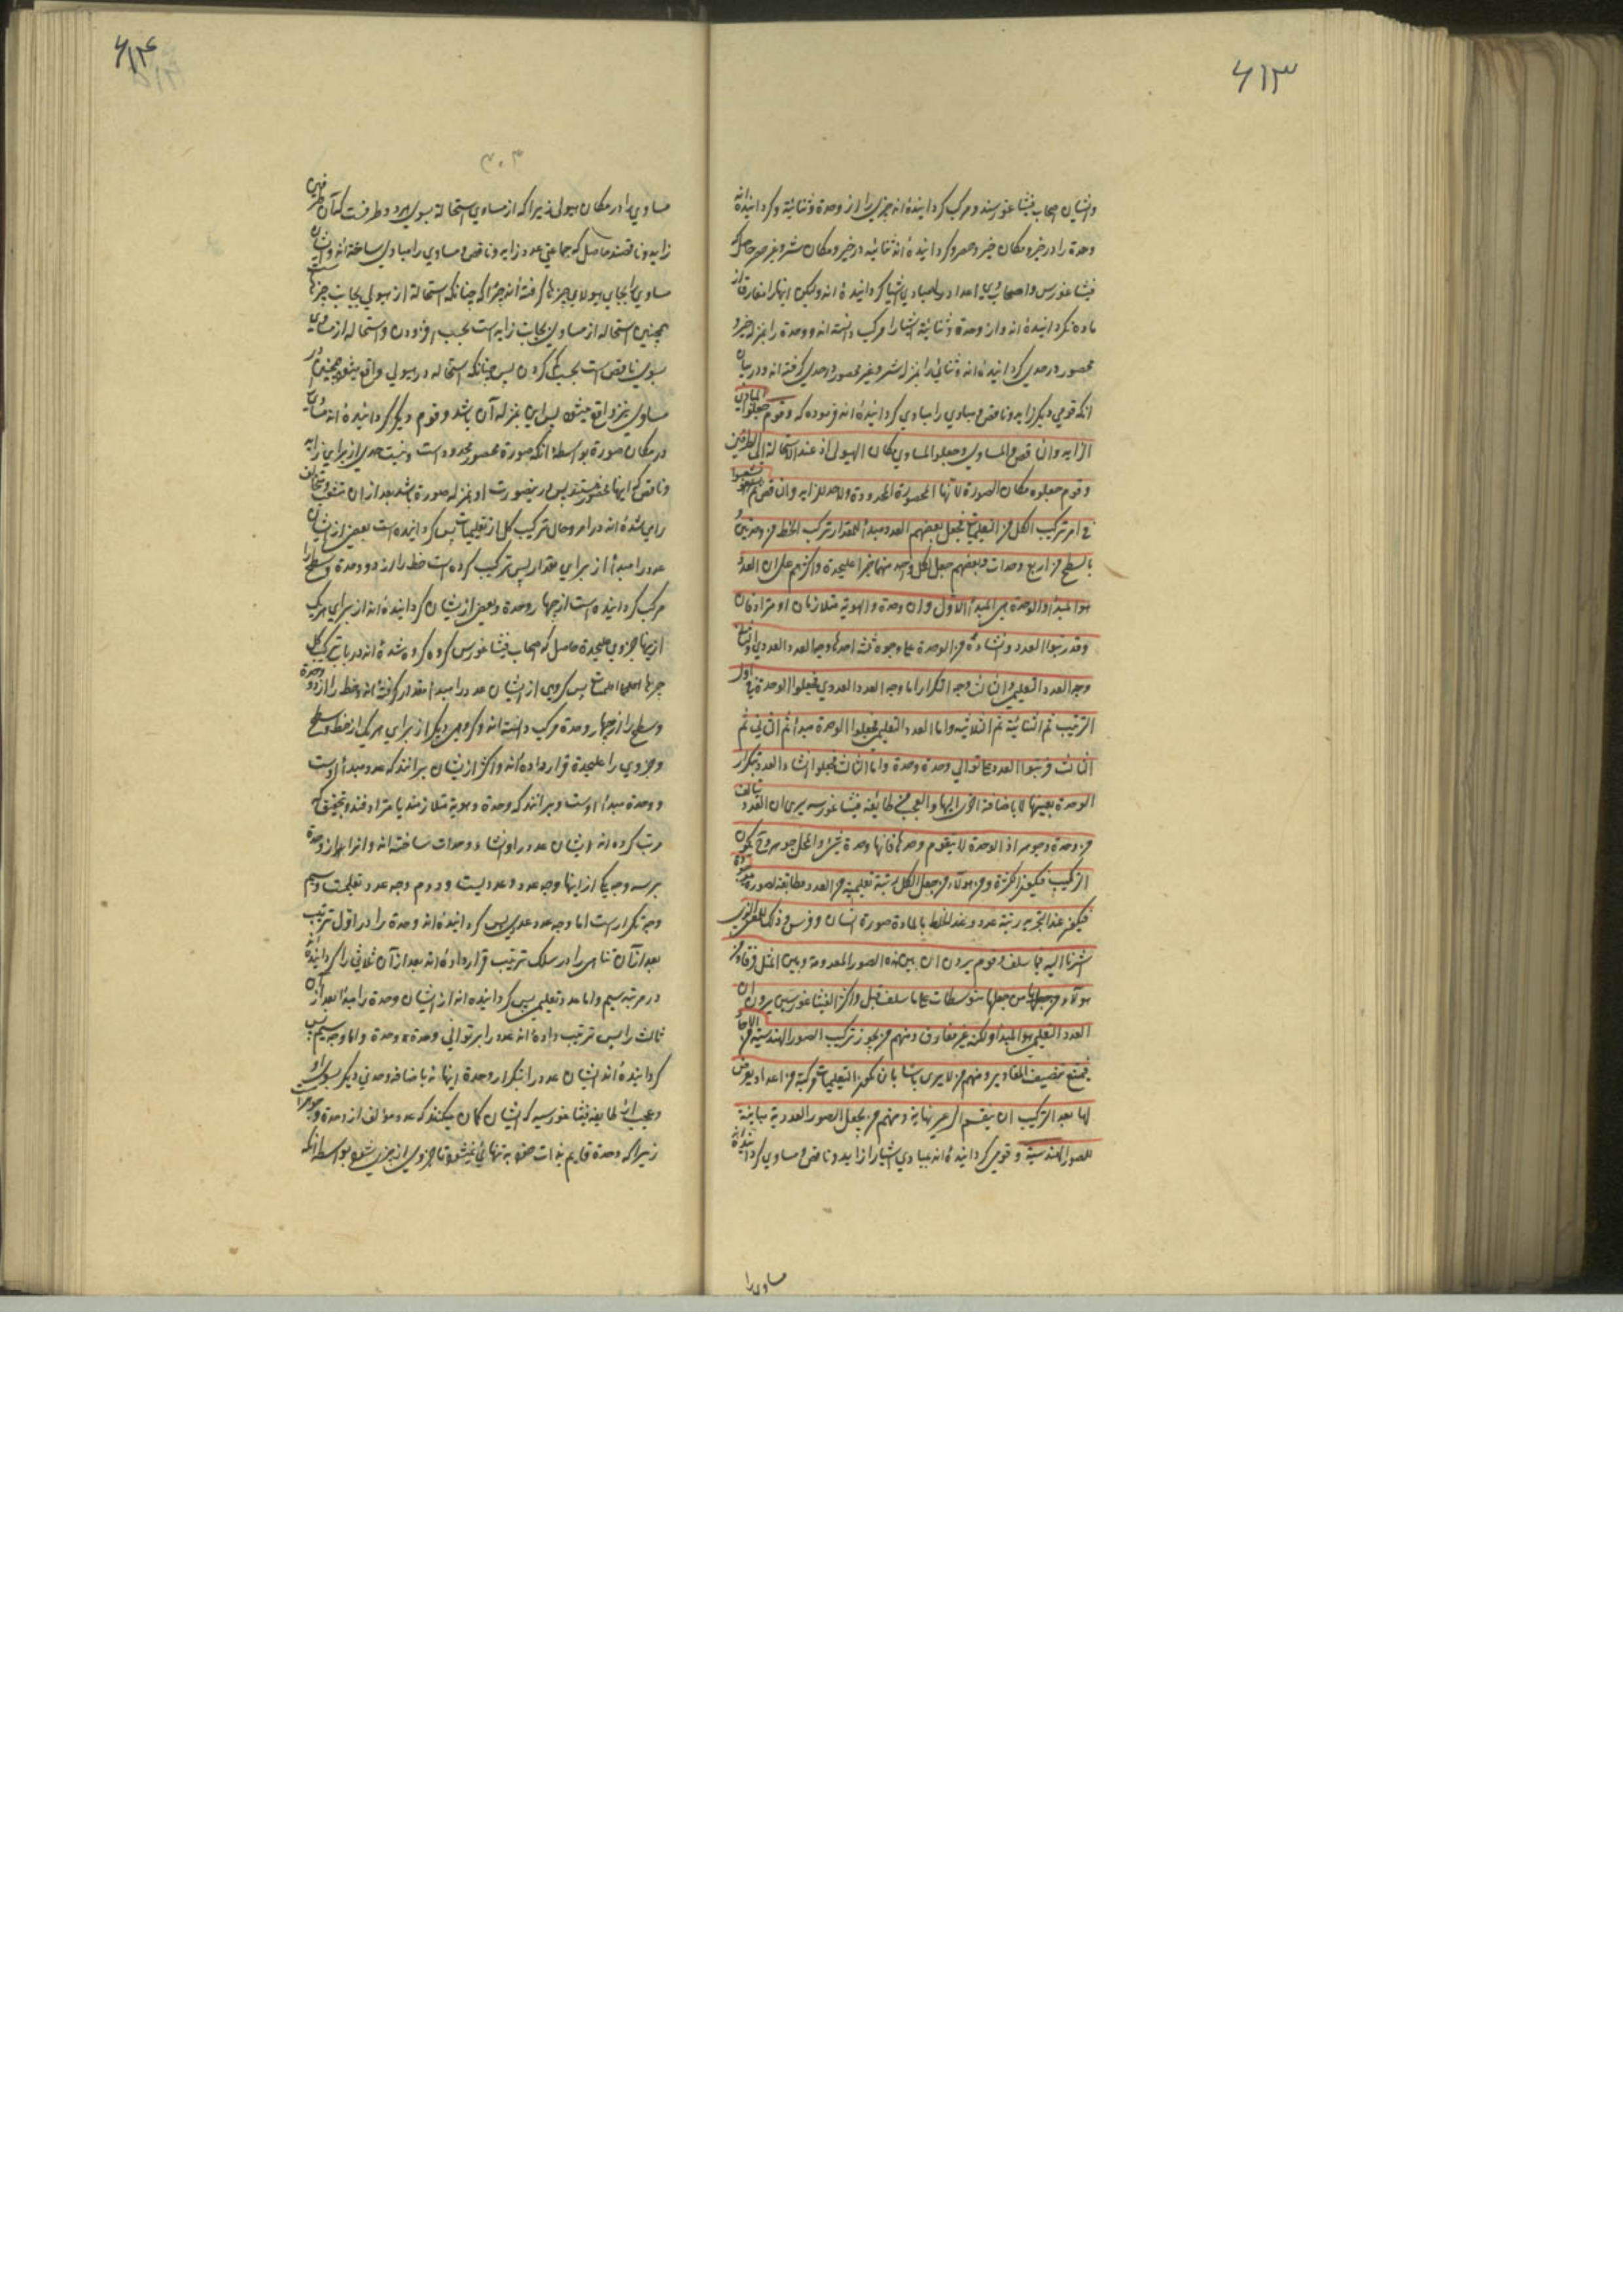 ۶۱۳
وایشان اصحاب فیثاغورسند و مرکب گردانیده‌اند چیزی را از وحدة و ثنائیة و گردانیده‌اند
وحدة را در خیر و مکان خیر و حصر و گردانیده‌اند ثنائیه در خیر و مکان شر و غیر حصر حاصل که
فیثاغورس و اصحاب وی اعداد را مبادی اشیا گردانیده‌اند ولیکن اینها را مفارق از
ماده نگردانیده‌اند و از وحدة و ثنائیة اشیا را مرکب دانسته‌اند و وحدة را بمنزله خیر و
محصور در حدی گردانیده‌اند و ثنائی را بمنزله شر و غیر محصور در حدی گرفته‌اند و در بیان
آنکه قومی دیگر زاید و ناقص و مساوی را مبادی گردانیده‌اند فرموده که و قوم جعلوا المبادی
الزاید والناقص والمساوی وجعلوا المساوی مکان الهیولی اذ عنه الاستحالة الی الطرفین
وقوم جعلوه مکان الصورة لانها المحصورة المحدودة ولا حد للزاید والناقص ثم تشعبوا
فی امر ترکیب الکل من التعلیمیات فجعل بعضهم العدد مبدأ للمقدار ترکب الخط من وحدتین و
السطح من اربع وحدات وبعضهم جعل لکل واحد منهما جزا علیحدة واکثرهم علی ان العدد
هو المبدأ والوحدة هی المبدأ الاول وان وحدة والهویة متلازمان او مترادفان
وقد رتبوا العدد وانشاءه من الوحدة علی وجوه ثلثة احدها وجه العدد العددی والثانی
وجه العدد التعلیمی والثالث وجه التکرار اما وجه العدد العددی فجعلوا الوحدة فی اول
الترتیب ثم الثنائیة ثم الثلاثیه واما العدد التعلیمی فجعلوا الوحدة مبدا ثم الثانی ثم
الثالث فرتبوا العدد علی توالی وحدة وحدة واما الثالث فجعلوا انشاء العدد بتکرار
الوحدة بعینها لا باضافة اخری الیها والعجب من طائفة فیثاغورسیه یری ان العدد یتألف
من وحدة وجوهر اذ الوحدة لا یتقوم وحدها فانها وحدة شیء والمحل جوهر وح یکون
الترکیب فیکون الکثرة ومن هؤلاء من جعل لکل رتبة تعلیمیة من العدد مطابقة لصورة موجودة
فیکون عند التجرید رتبة عدد و عند الخلط بالمادة صورة انسان وفرس وذلک للمعنی الذی
اشرنا الیه فیما سلف وقوم یرون ان بین هذه الصور العددیه وبین المثل فرقا ومن
هؤلاء من جعلها متوسطات علی ما سلف قبل واکثر الفیثاغورسیین یرون ان
العدد التعلیمی هو المبدأ ولکنه غیر مفارق ومنهم من یجوز ترکیب الصور الهندسیه من الاحاد
فیمتنع تنصیف المقادیر ومنهم من لا یری باسا بان یکون التعلیمیات مرکبة من اعداد یعرض
لها بعد الترکیب ان ینقسم الی غیر نهایة ومنهم من یجعل الصور العددیة مباینة
للصور الهندسیة و قومی گردانیده‌اند مبادی اشیا را زاید و ناقص و مساوی گردانیده‌اند
مساوی را
۶۱۴
۳۰۳
مساوی را در مکان هیولی زیرا که از مساوی استحالة بسوی هر دو طرفست که آن طرفین
زاید و ناقصند حاصل که جماعتی عدد زاید و ناقص و مساوی را مبادی ساخته‌اند و ایشان
مساوی را بجای هیولای چیزها گرفته‌اند چرا که چنانکه استحالة از هیولی بجانب چیزهاست
همچنین استحاله از مساوی بجانب زاید است بسبب افزودن و استحاله از مساوی
بسوی ناقص است بسبب کم کردن پس چنانکه استحاله در هیولی واقع میشود همچنین در
مساوی نیز واقع میشود پس این بمنزله آن باشد و قوم دیگر گردانیده‌اند مساوی
در مکان صورة بواسطه آنکه صورة محصور محدود است و نیست حدی از برای زاید
و ناقص
رای شده‌اند در امر و حال ترکیب کل از تعلیمیات پس گردانیده است بعضی از ایشان
عدد را مبدأ از برای مقدار پس ترکیب کرده است خط را از دو وحدة و سطح را
مرکب گردانیده است از چهار وحدة و بعضی از ایشان گردانیده‌اند از برای هر یک
ازینها جزوی علیحدة حاصل که اصحاب فیثاغورس گروه گروه شده‌اند در باب ترکیب کل
چیزها پس گروهی از ایشان عدد را مبدأ مقدار گرفته‌اند و خط را از دو وحدة
و سطح را از چهار وحدة مرکب دانسته‌اند و گروهی دیگر از برای هر یک از خط و سطح
جزوی را علیحدة قرار داده‌اند و اکثر از ایشان برانند که عدد مبدأ اوست
و وحدة مبدأ اوست و برانند که وحدة و هویة متلازمند یا مترادفند و بتحقیق که
مرتب کرده‌اند ایشان عدد را و انشاء وحدات ساخته‌اند و آنرا از وحدة
بر سه وجه یکی از اینها وجه عدد و عددیست و دوم وجه عدد تعلیمست و سیم
وجه تکرار است اما وجه عدد عددی پس گردانیده‌اند وحدة را در اول ترتیب
بعد از آن ثنایی را در سلک ترتیب قرار داده‌اند بعد از آن ثلاثی را گردانیده‌اند
در مرتبه سیم و اما عدد تعلیمی پس گردانیده‌اند از ایشان وحدة را مبدأ بعد از آن
ثالث را پس ترتیب داده‌اند عدد را بر توالی وحدة وحدة و اما وجه سیم پس
گردانیده‌اند ایشان عدد را بتکرار وحدة اینها نه باضافه وحدتی دیگر بسوی او
و عجب از طایفه فیثاغورسیه که ایشان گمان میکنند که عدد مؤلف از وحدة و جوهر است
زیرا که وحدة قایم بذات خود به تنهایی نمیشود تا جزوی از چیزی شود بواسطه آنکه